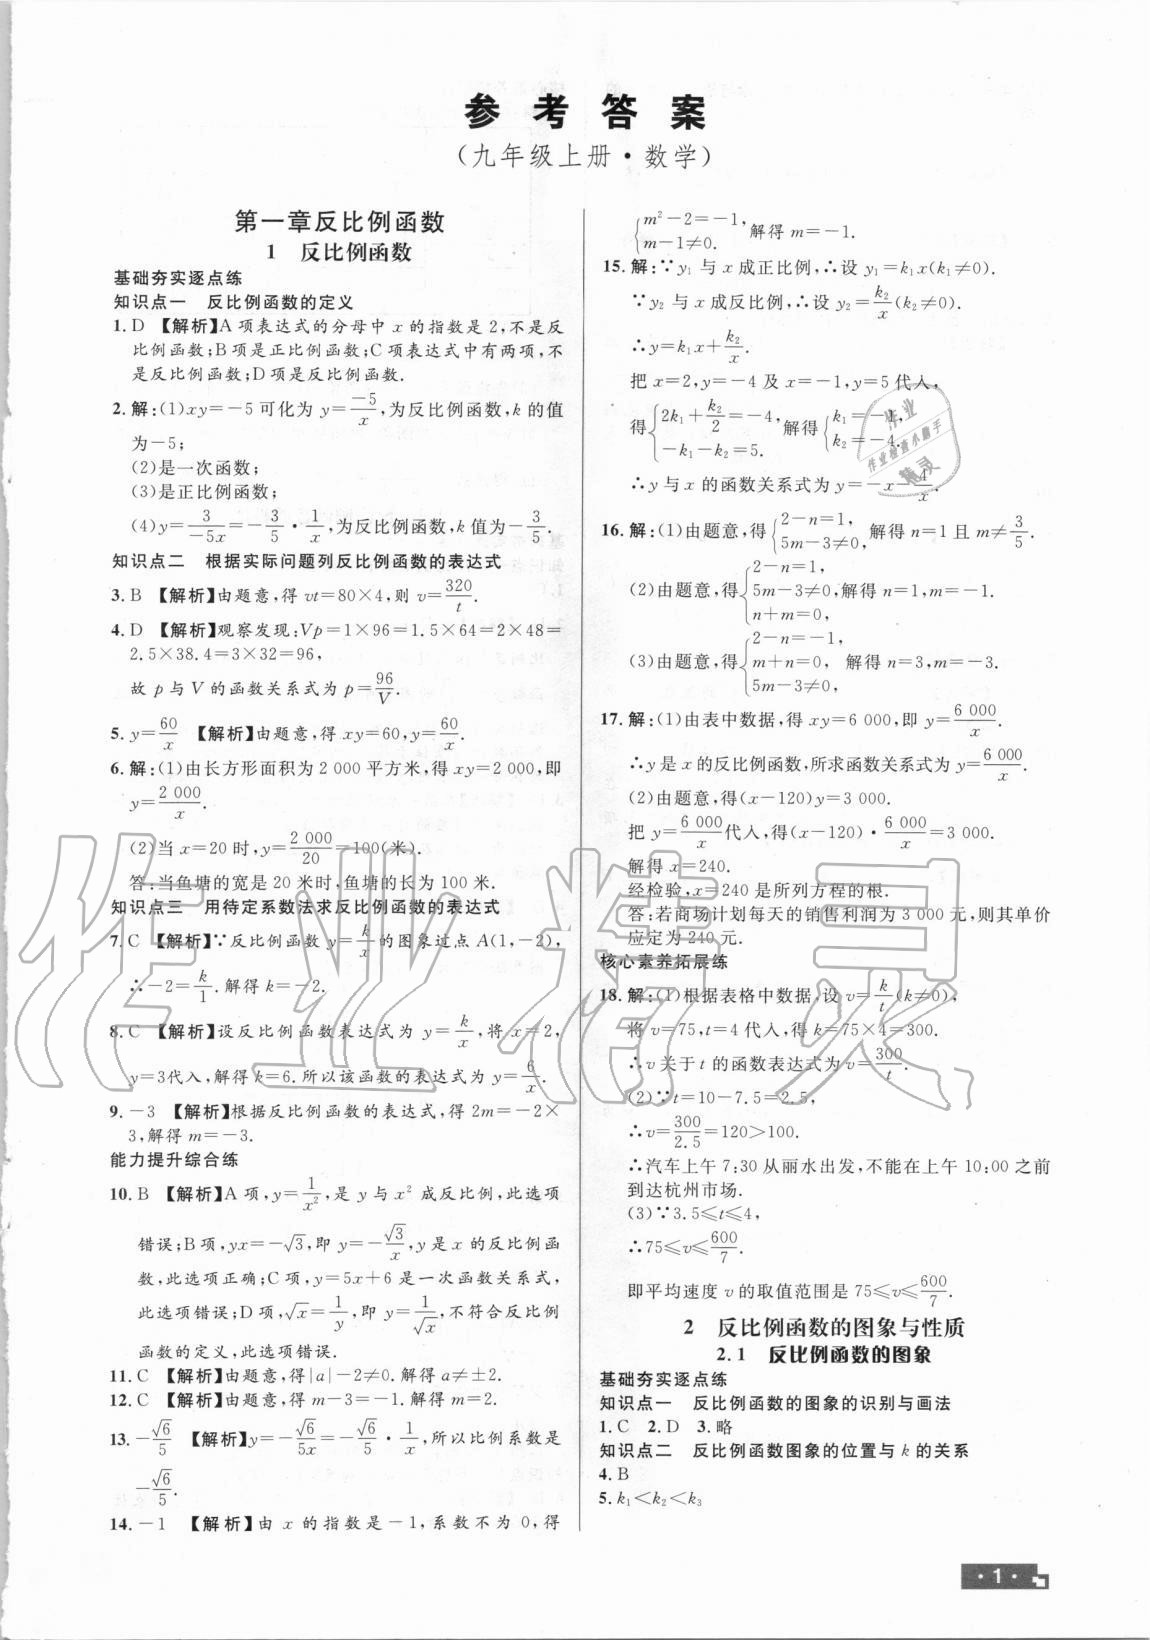 参考答案
(九年级上册·数学)
第一章反比例函数
1 反比例函数
基础夯实逐点练
知识点一 反比例函数的定义
1. D 【解析】A 项表达式的分母中 x 的指数是 2,不是反
比例函数;B项是正比例函数;C项表达式中有两项,不
是反比例函数;D项是反比例函数.
2. 解:(1)xy=-5 可化为 y=-5/x,为反比例函数,k 的值
为-5;
(2)是一次函数;
(3)是正比例函数;
(4)y=3/-5x=-3/5·1/x,为反比例函数,k 值为-3/5.
知识点二 根据实际问题列反比例函数的表达式
3. B 【解析】由题意,得 vt=80×4,则 v=320/t.
4. D 【解析】观察发现:Vp=1×96=1.5×64=2×48=
2.5×38.4=3×32=96,
故 p 与 V 的函数关系式为 p=96/V.
5. y=60/x 【解析】由题意,得 xy=60,y=60/x.
6. 解:(1)由长方形面积为 2 000 平方米,得 xy=2 000,即
y=2 000/x.
(2)当 x=20 时,y=2 000/20=100(米).
答:当鱼塘的宽是 20 米时,鱼塘的长为 100 米.
知识点三 用待定系数法求反比例函数的表达式
7. C 【解析】∵反比例函数 y=k/x的图象过点 A(1,-2),
∴-2=k/1.解得 k=-2.
8. C 【解析】设反比例函数表达式为 y=k/x,将 x=2,
y=3代入,解得 k=6.所以该函数的表达式为 y=6/x.
9. -3 【解析】根据反比例函数的表达式,得 2m=-2×
3,解得 m=-3.
能力提升综合练
10. B 【解析】A 项,y=1/x²,是 y 与 x² 成反比例,此选项
错误;B项,yx=-√3,即 y=-√3/x,y 是 x 的反比例函
数,此选项正确;C项,y=5x+6 是一次函数关系式,
此选项错误;D项,√x=1/y,即 y=1/√x,不符合反比例
函数的定义,此选项错误.
11. C 【解析】由题意,得|a|-2≠0.解得 a≠±2.
12. C 【解析】由题意,得 m-3=-1.解得 m=2.
13. -√6/5 【解析】y=-√6/5x=-√6/5·1/x,所以比例系数是
-√6/5.
14. -1 【解析】由 x 的指数是-1,系数不为 0,得
{m²-2=-1, m-1≠0. 解得 m=-1.
15. 解:∵y₁ 与 x 成正比例,∴设 y₁=k₁x(k₁≠0).
∵y₂ 与 x 成反比例,∴设 y₂=k₂/x(k₂≠0).
∴y=k₁x+k₂/x.
把 x=2,y=-4 及 x=-1,y=5 代入,
得{2k₁+k₂/2=-4, -k₁-k₂=5. 解得{k₁=-1, k₂=-4.
∴y 与 x 的函数关系式为 y=-x-4/x.
16. 解:(1)由题意,得{2-n=1, 5m-3≠0, 解得 n=1 且 m≠3/5.
(2)由题意,得{2-n=1, 5m-3≠0, n+m=0. 解得 n=1,m=-1.
(3)由题意,得{2-n=-1, m+n=0, 5m-3≠0, 解得 n=3,m=-3.
17. 解:(1)由表中数据,得 xy=6 000,即 y=6 000/x.
∴y 是 x 的反比例函数,所求函数关系式为 y=6 000/x.
(2)由题意,得(x-120)y=3 000.
把 y=6 000/x代入,得(x-120)·6 000/x=3 000.
解得 x=240.
经检验,x=240 是所列方程的根.
答:若商场计划每天的销售利润为 3 000 元,则其单价
应定为 240 元.
核心素养拓展练
18. 解:(1)根据表格中数据,设 v=k/t(k≠0),
将 v=75,t=4 代入,得 k=75×4=300.
∴v 关于 t 的函数表达式为 v=300/t.
(2)∵t=10-7.5=2.5,
∴v=300/2.5=120>100.
∴汽车上午 7:30 从丽水出发,不能在上午 10:00 之前
到达杭州市场.
(3)∵3.5≤t≤4,
∴75≤v≤600/7.
即平均速度 v 的取值范围是 75≤v≤600/7.
2 反比例函数的图象与性质
2.1 反比例函数的图象
基础夯实逐点练
知识点一 反比例函数的图象的识别与画法
1. C 2. D 3. 略
知识点二 反比例函数图象的位置与 k 的关系
4. B
5. k₁<k₂<k₃
·1·
作业精灵
作业
作业检查小助手
精灵